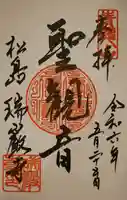 奉拝
令和六年
五月二十五日
聖観音
松島 瑞巌寺